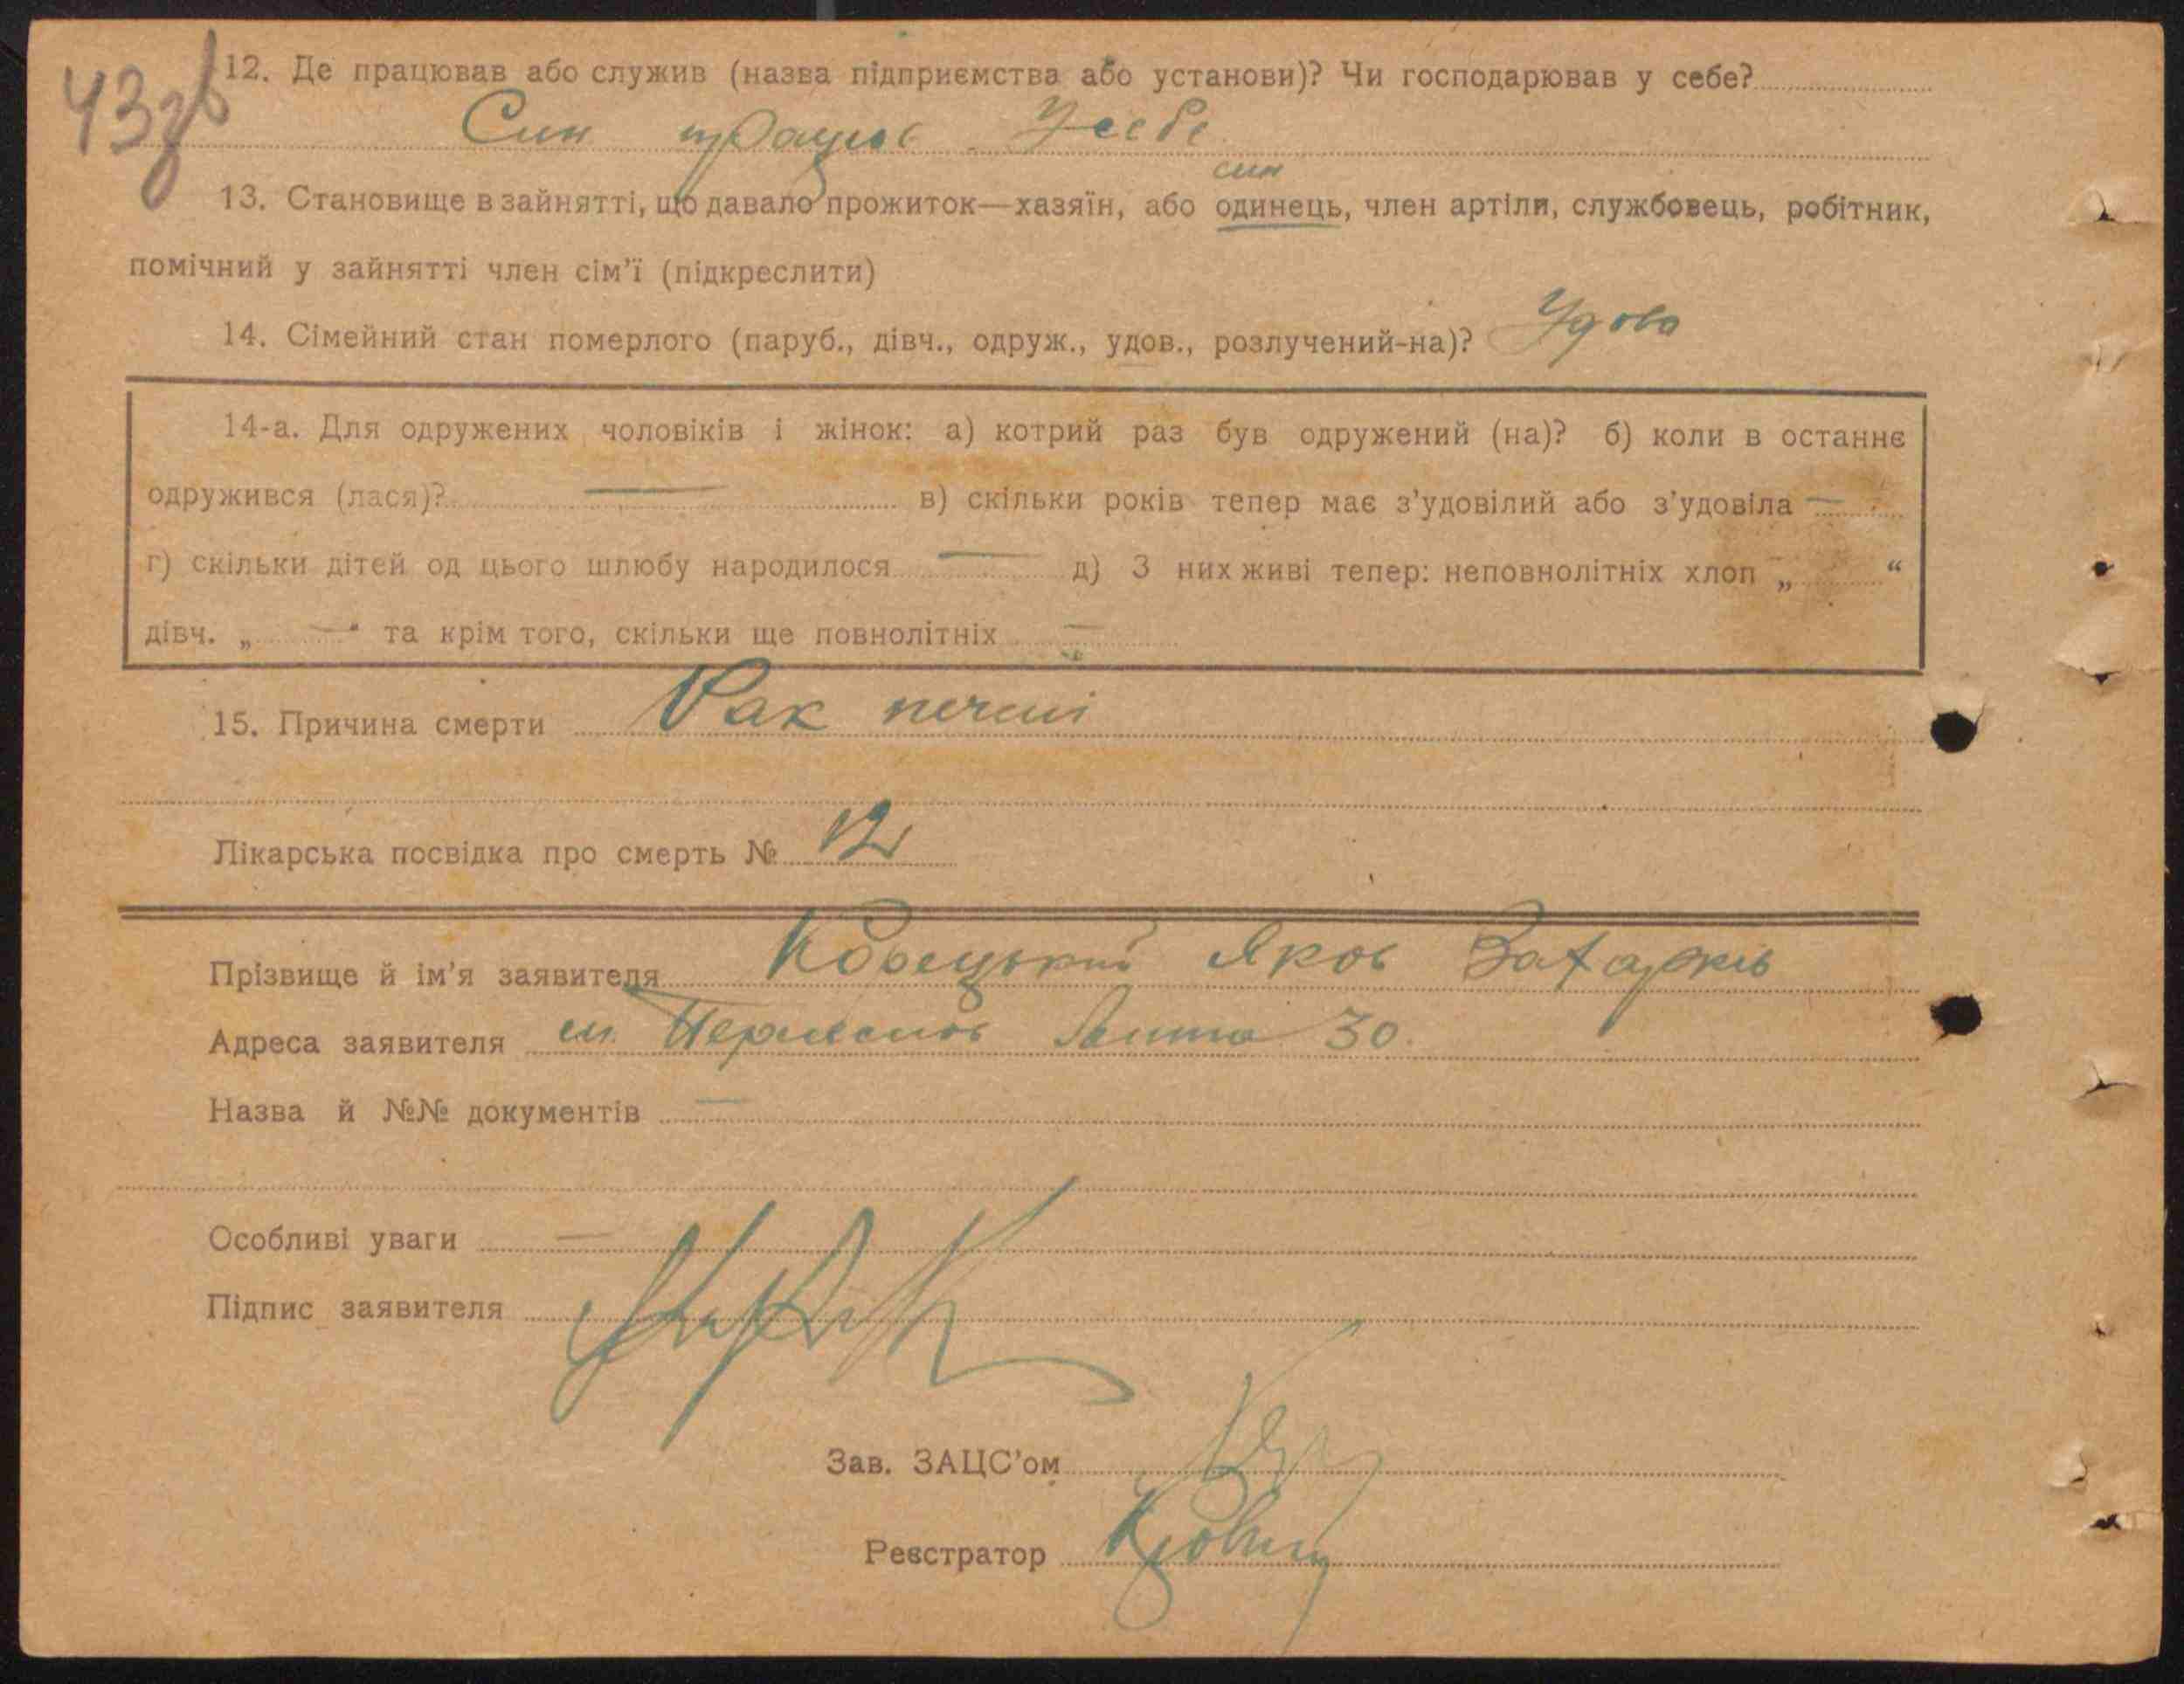 43зв
12. Де працював або служив (назва підприємства або установи)? Чи господарював у себе?
Син працює У себе
син
13. Становище в зайнятті, що давало прожиток—хазяїн, або одинець, член артіли, службовець, робітник,
помічний у зайнятті член сім'ї (підкреслити)
14. Сімейний стан померлого (паруб., дівч., одруж., удов., розлучений-на)? Удова
14-а. Для одружених чоловіків і жінок: а) котрий раз був одружений (на)? б) коли в останнє
одружився (лася)? — в) скільки років тепер має з'удовілий або з'удовіла —
г) скільки дітей од цього шлюбу народилося — д) З них живі тепер: неповнолітніх хлоп „ — “
дівч. „ — “ та крім того, скільки ще повнолітніх —
15. Причина смерти Рак печені
Лікарська посвідка про смерть № 12
Прізвище й ім'я заявителя Яков
Адреса заявителя м. 30
Назва й №№ документів —
Особливі уваги —
Підпис заявителя
Зав. ЗАЦС'ом
Реєстратор